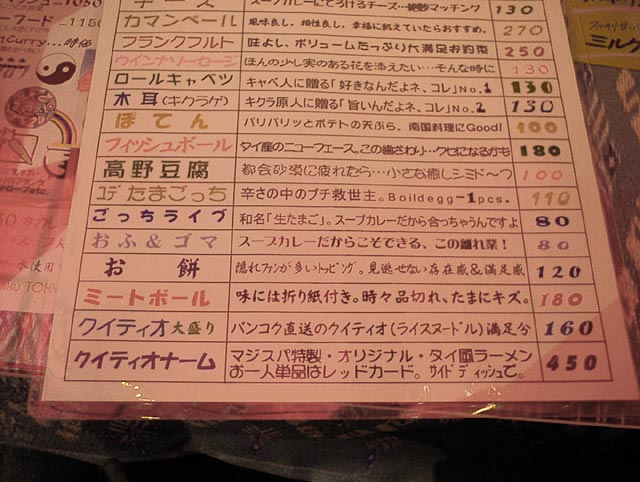 チーズ スープカレーにとろけるチーズ…絶妙マッチング 130
カマンベール 風味良し。相性良し。幸福に飢えていたらおすすめ。 270
フランクフルト 味よし、ボリュームたっぷり大満足お約束 250
ウインナソーセージ ほんの少し実のある花を添えたい…そんな時に 130
ロールキャベツ キャベ人に贈る「好きなんだよネ、コレ」No.1 130
木耳(キクラゲ) キクラ原人に贈る「旨いんだよネ、コレ」No.2 130
ぽてん バリバリッとポテトの天ぷら。南国料理にGood! 100
フィッシュボール タイ産のニューフェース。この歯ざわり…クセになるかも 180
高野豆腐 都会砂漠に疲れたら…小さな癒しシミド〜つ 100
ユデたまごっち 辛さの中のプチ救世主。Boildegg-1pcs. 110
ごっちライヴ 和名「生たまご」。スープカレーだから合っちゃうんですよ 80
おふ&ゴマ スープカレーだからこそできる、この離れ業! 80
お餅 隠れファンが多いトッピング。見逃せない存在感&満足感 120
ミートボール 味には折り紙付き。時々品切れ、たまにキズ。 180
クイティオ大盛り バンコク直送のクイティオ(ライスヌードル)満足分 160
クイティオナーム マジスパ特製・オリジナル・タイ風ラーメン
お一人単品はレッドカード。サイドディッシュで。 450